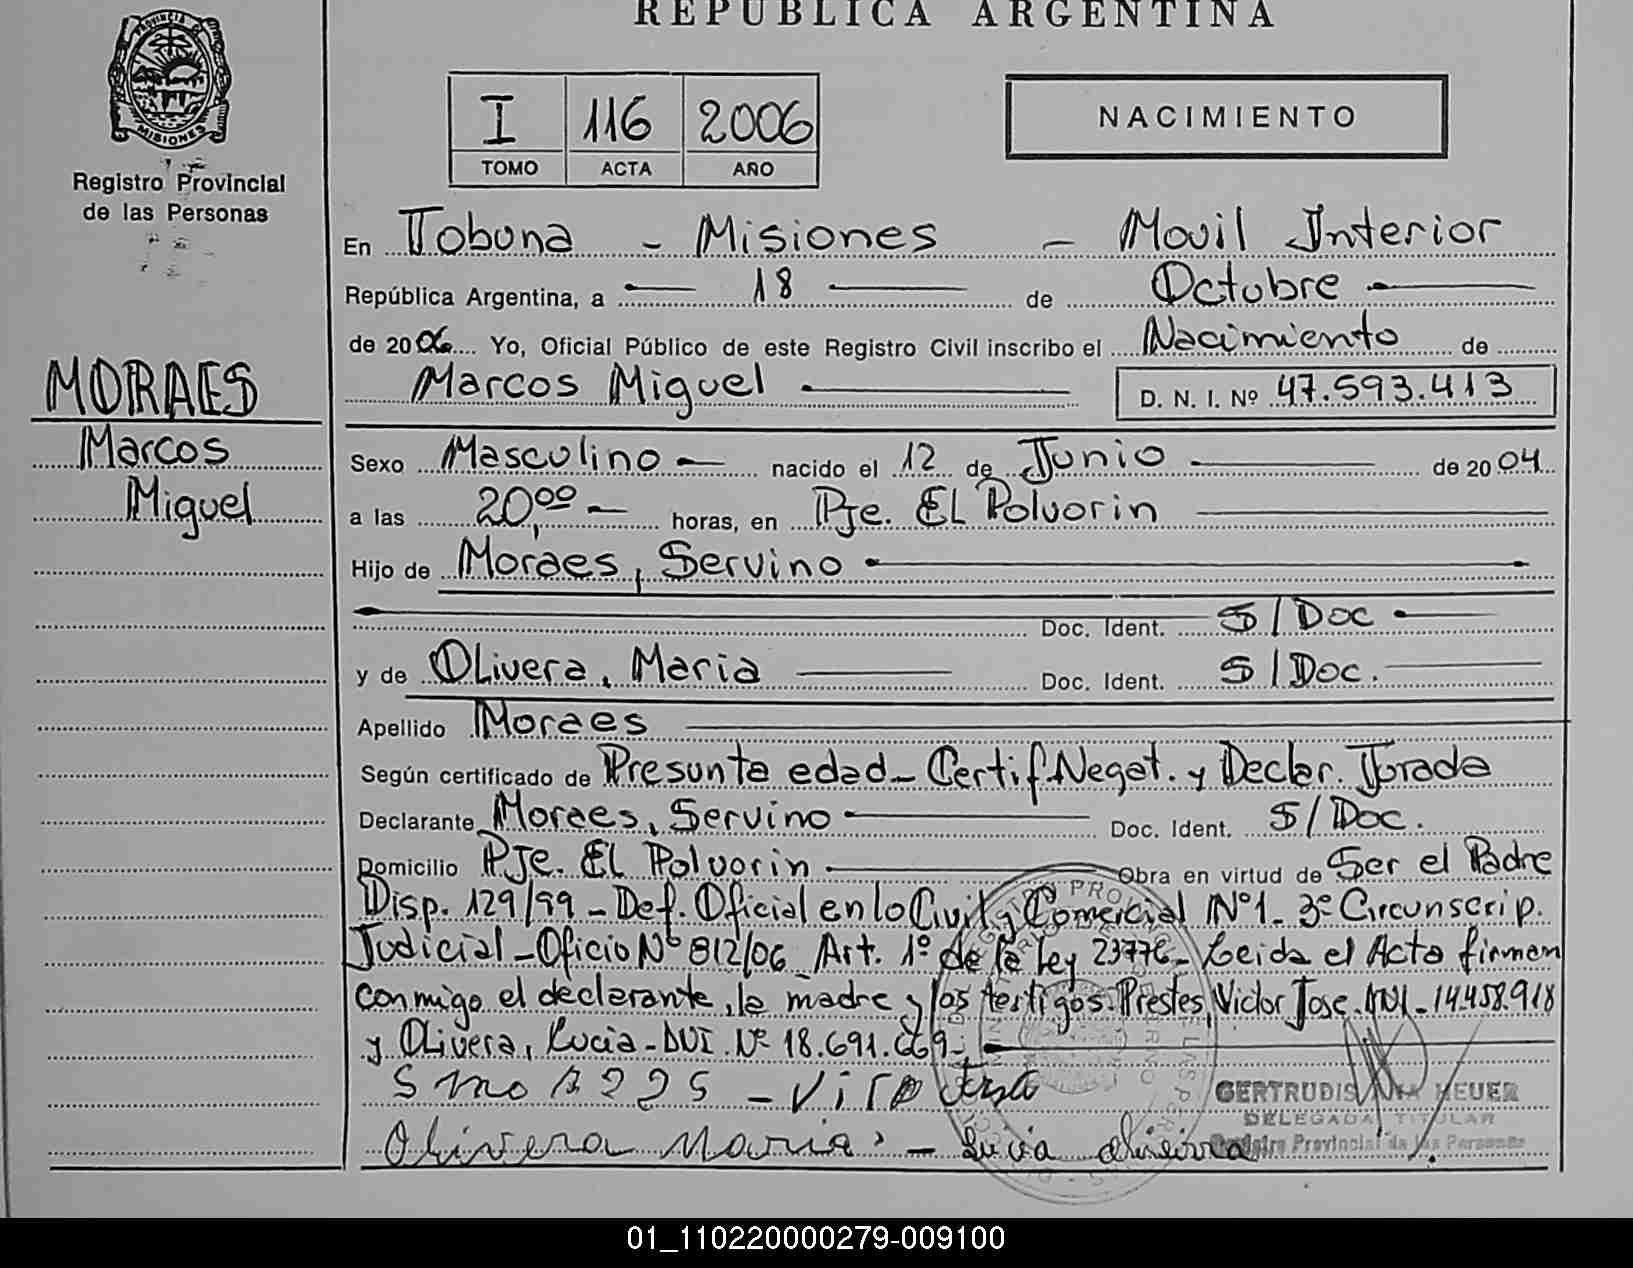 REPUBLICA ARGENTINA
PROVINCIA
MISIONES
Registro Provincial
de las Personas
I 116 2006
TOMO ACTA AÑO
NACIMIENTO
MORAES
Marcos
Miguel
En Tobuna - Misiones - Movil Interior
República Argentina, a 18 de Octubre
de 2006 Yo, Oficial Público de este Registro Civil inscribo el Nacimiento de
Marcos Miguel D. N. I. Nº 47.593.413
Sexo Masculino nacido el 12 de Junio de 2004
a las 20,00 horas, en Pje. EL Polvorin
Hijo de Moraes, Servino
Doc. Ident. S/Doc
y de Olivera, Maria Doc. Ident. S/Doc.
Apellido Moraes
Según certificado de Presunta edad - Certif. Negat. y Declar. Jurada
Declarante Moraes, Servino Doc. Ident. S/Doc.
Domicilio Pje. EL Polvorin Obra en virtud de Ser el Padre
Disp. 129/99 - Def. Oficial en lo Civil y Comercial Nº1 - 3º Circunscrip.
Judicial - Oficio Nº 812/06 Art. 1º de la Ley 23776 - Leida el Acta firman
conmigo el declarante, la madre y los testigos: Prestes, Victor Jose. DNI - 14.458.918
y Olivera, Lucia - DNI. Nº 18.691.669 -
GERTRUDIS HEUER
DELEGADA TITULAR
Registro Provincial de las Personas
Olivera Maria - Lucia Olivera
01_110220000279-009100